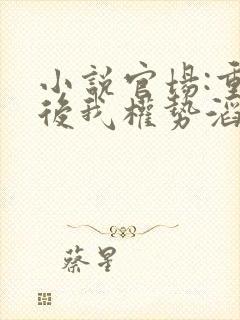 小説官場:重
後我權勢滔
蔡星